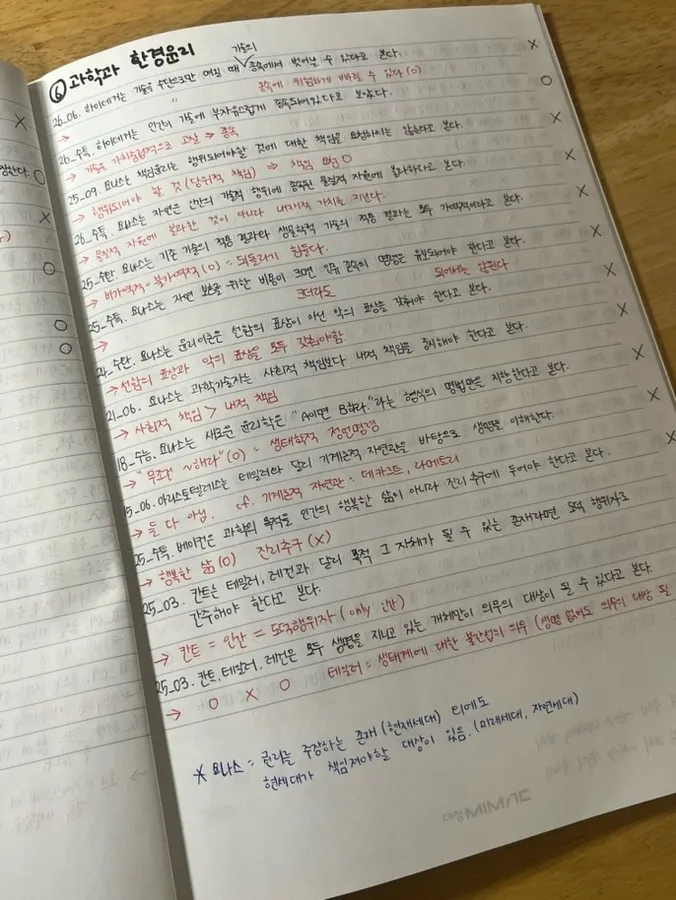 ⑥ 과학과 환경윤리
26_06. 하이데거는 기술을 수단으로만 여길 때 기술의 종속에서 벗어날 수 있다고 본다. X
→ 종속에 위험하게 빠질 수 있다 (O)
26_수특. 하이데거는 인간이 기술에 부자유스럽게 종속되어있다고 보았다. O
→ 기술을 가치중립적으로 고찰 ⇒ 종속
25_09. 요나스는 책임윤리는 행위되어야할 것에 대한 책임을 요청하지는 않는다고 본다. X
→ 행위되어야 할 것 (당위적 책임) ⇒ 책임 요청 O
26_수특. 요나스는 자연은 인간의 기술적 행위에 종속된 물질적 자원에 불과하다고 본다. X
→ 물질적 자원에 불과한 것이 아니라 내재적 가치를 지닌다.
25_수완. 요나스는 기존 기술의 적용 결과와 생물학적 기술의 적용 결과는 모두 가역적이라고 본다. X
→ 비가역적·불가역적 (O) = 되돌리기 힘들다.
25_수특. 요나스는 자연 보호를 위한 비용이 크면 인류 존속의 명령은 유보되어야 한다고 본다. X
→ 크더라도 되어서는 안된다
24_수완. 요나스는 윤리이론은 선함의 표상이 아닌 악의 표상을 갖춰야 한다고 본다. X
→ 선함의 표상과 악의 표상을 모두 갖춰야함.
21_06. 요나스는 과학기술자는 사회적 책임보다 내적 책임을 중시해야 한다고 본다. X
→ 사회적 책임 > 내적 책임
18_수능. 요나스는 새로운 윤리학은 "A이면 B하라."라는 형식의 명법만을 지향한다고 본다. X
→ "무조건 ~해라" (O) = 생태학적 정언명령
15_06. 아리스토텔레스는 테일러와 달리 기계론적 자연관을 바탕으로 생명을 이해한다. X
→ 둘 다 아님. cf. 기계론적 자연관 = 데카르트, 라메트리
25_수특. 베이컨은 과학의 목적을 인간의 행복한 삶이 아니라 진리 추구에 두어야 한다고 본다. X
→ 행복한 삶 (O) 진리추구 (X)
25_03. 칸트는 테일러, 레건과 달리 목적 그 자체가 될 수 있는 존재라면 도덕 행위자로
간주해야 한다고 본다.
→ 칸트 = 인간 = 도덕행위자 (only 인간)
25_03. 칸트, 테일러, 레건은 모두 생명을 지니고 있는 개체만이 의무의 대상이 될 수 있다고 본다.
→ O X O 테일러 = 생태계에 대한 불간섭의 의무 (생명 없어도 의무의 대상 될
* 요나스 = 권리를 주장하는 존재 (현재세대) 외에도
현세대가 책임져야할 대상이 있음. (미래세대, 자연세대)
대성MIMAC